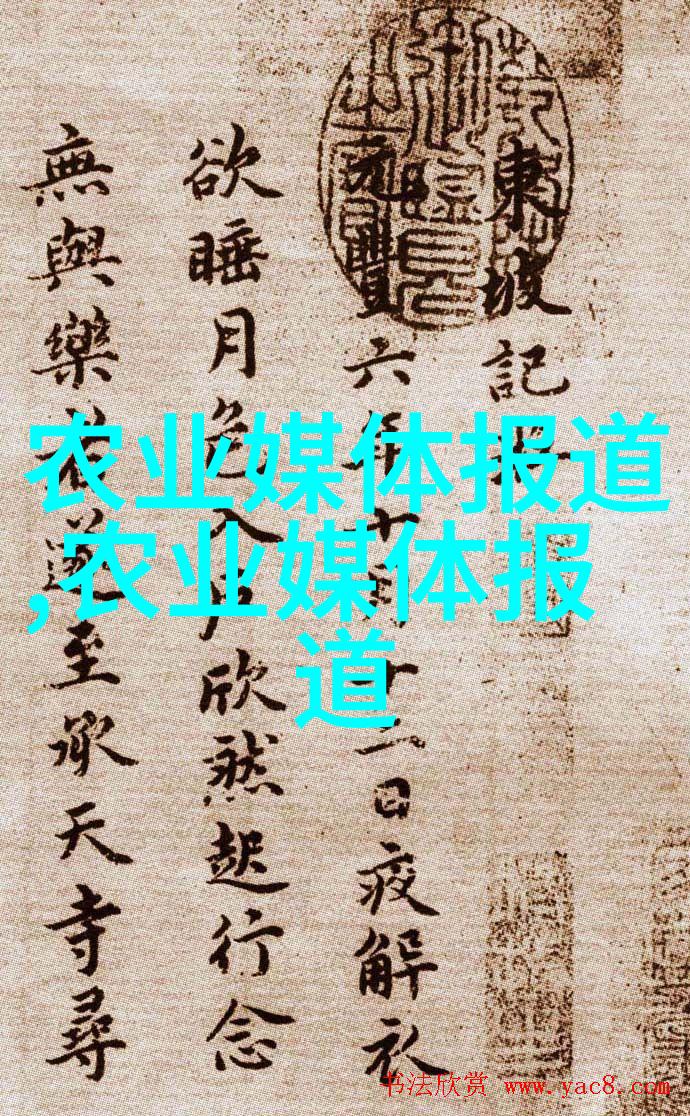 東坡記
元豐六年十月十二日夜解衣
欲睡月色入戶欣然起行念
無與樂者遂至承天寺尋
农业媒体报道
,农业媒体报
道
书法欣赏 www.yac8.com